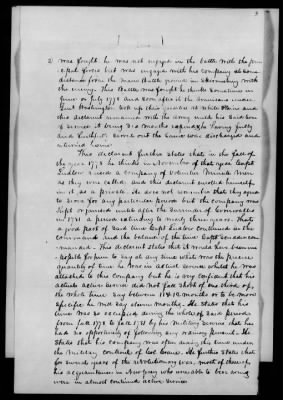 2) was fought. he was not engaged in the battle with the prin
cipal forces but was engaged with his company at some
distance from the main Battle ground in skirmishing with
the enemy. This Battle was fought he thinks sometime in
June or July 1778 And soon after it the Americans under
Genl Washington took up their quarters at White Plains and
this declarant remained with the Army until his said term
of service it being six months
and
was discharged and
returned home
This declarant further states that in the fall of
the year 1778 he thinks in November of that year Captn
raised a company of volunteer Minute Men
as they were called and this declarant enrolled himself
in it as a private he does not remember that they agreed
to serve for any particular period but the company was
kept organized until after the surrender of Cornwallis
in 1781 a period extending to nearly three years. That a
good part of said time Captn continued in the
command and the balance of the time Captn
manded. This declarant states that it would have been im
possible for him to say at any time what was the precise
quantity of time he was in actual service whilst he was
attached to this company but he is very confident that his
actual service did not fall short of one third of
the whole time say between 11 & 12 months or to be more
specific he will say eleven months. He states that his
time was so occupied during the whole of said periods
from fall 1778 to fall 1781 by his Military service that he
had no opportunity of following any pursuit. He
states that his company was often during this time under
the Military control of He further states that
for several years of the revolutionary war, most of
his acquaintances in New Jersey who were able to bear arms
were in almost continued active service